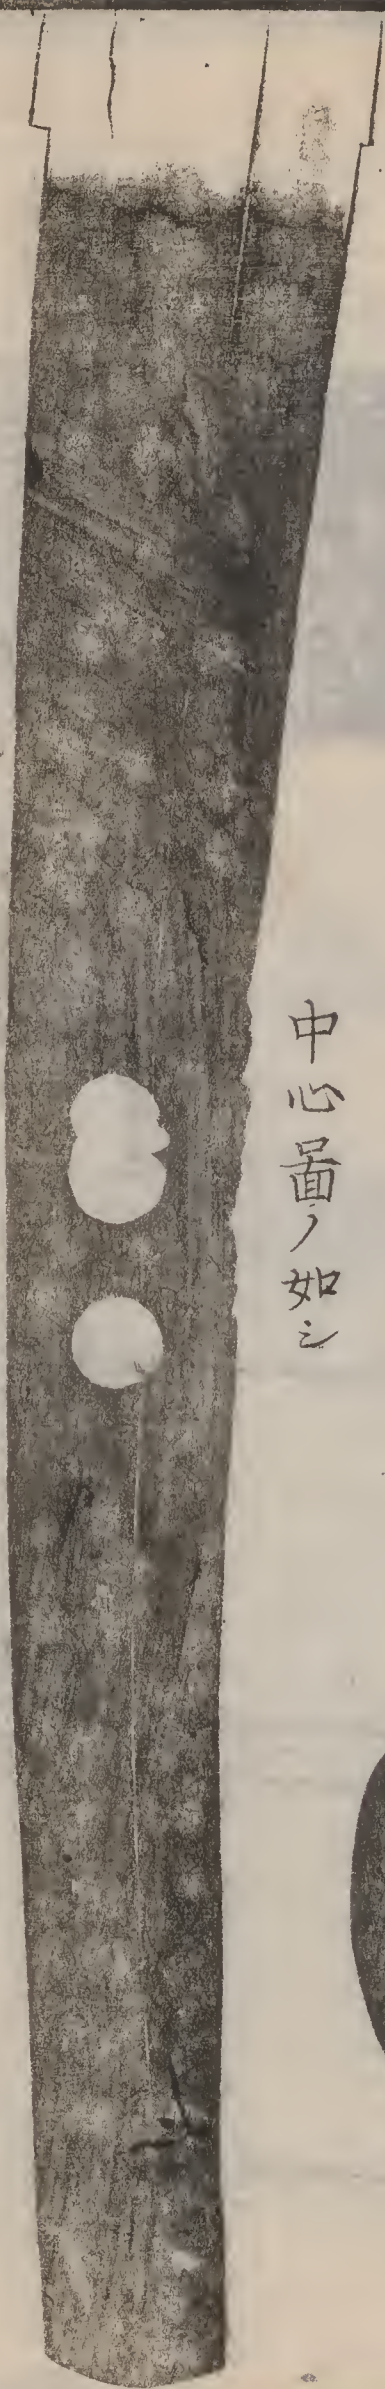 中心啚ノ如シ